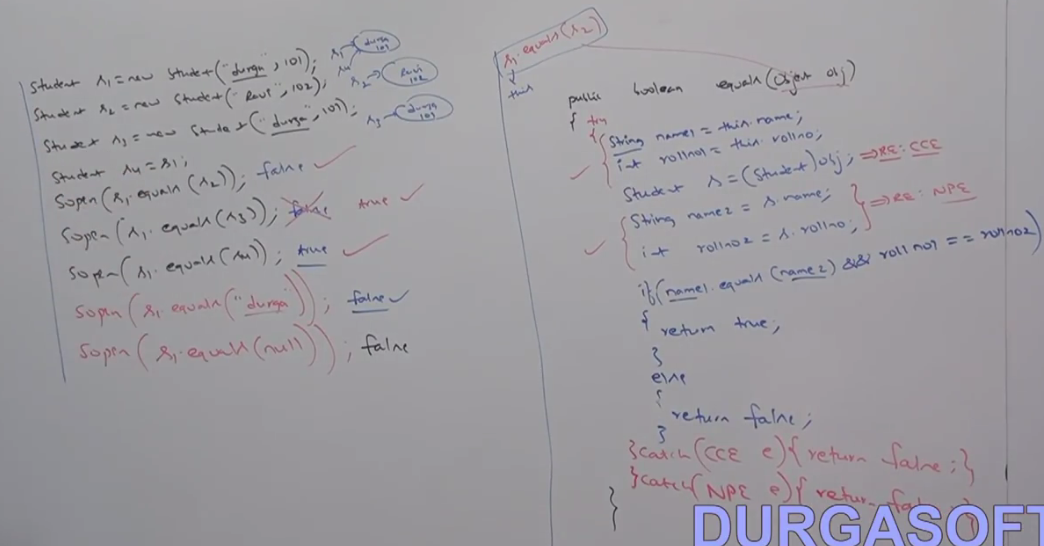 Student s1 = new Student("durga", 101);
Student s2 = new Student("Ravi", 102);
Student s3 = new Student("durga", 101);
Student s4 = s1;
Sopln(s1.equals(s2)); false
Sopln(s1.equals(s3)); false true
Sopln(s1.equals(s4)); true
Sopln(s1.equals("durga")); false
Sopln(s1.equals(null)); false
s1 durga 101
s4
s2 Ravi 102
s3 durga 101
s1.equals(s2)
this
public boolean equals(Object obj)
{ try
{ String name1 = this.name;
int rollno1 = this.rollno;
Student s = (Student)obj; ⇒ RE: CCE
String name2 = s.name;
int rollno2 = s.rollno; } ⇒ RE: NPE
if(name1.equals(name2) && rollno1 == rollno2)
{
return true;
}
else
{
return false;
}
}catch(CCE e){return false;}
}catch(NPE e){return false;}
}
DURGASOFT